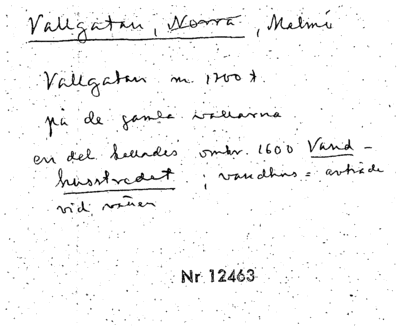 Vallgatan, Norra, Malmö
Vallgatan m. 1700 t.
på de gamla vallarna
en del kallades omkr. 1600 Vand-
husstredet; vandhus = avträde
vid vallen
Nr 12463